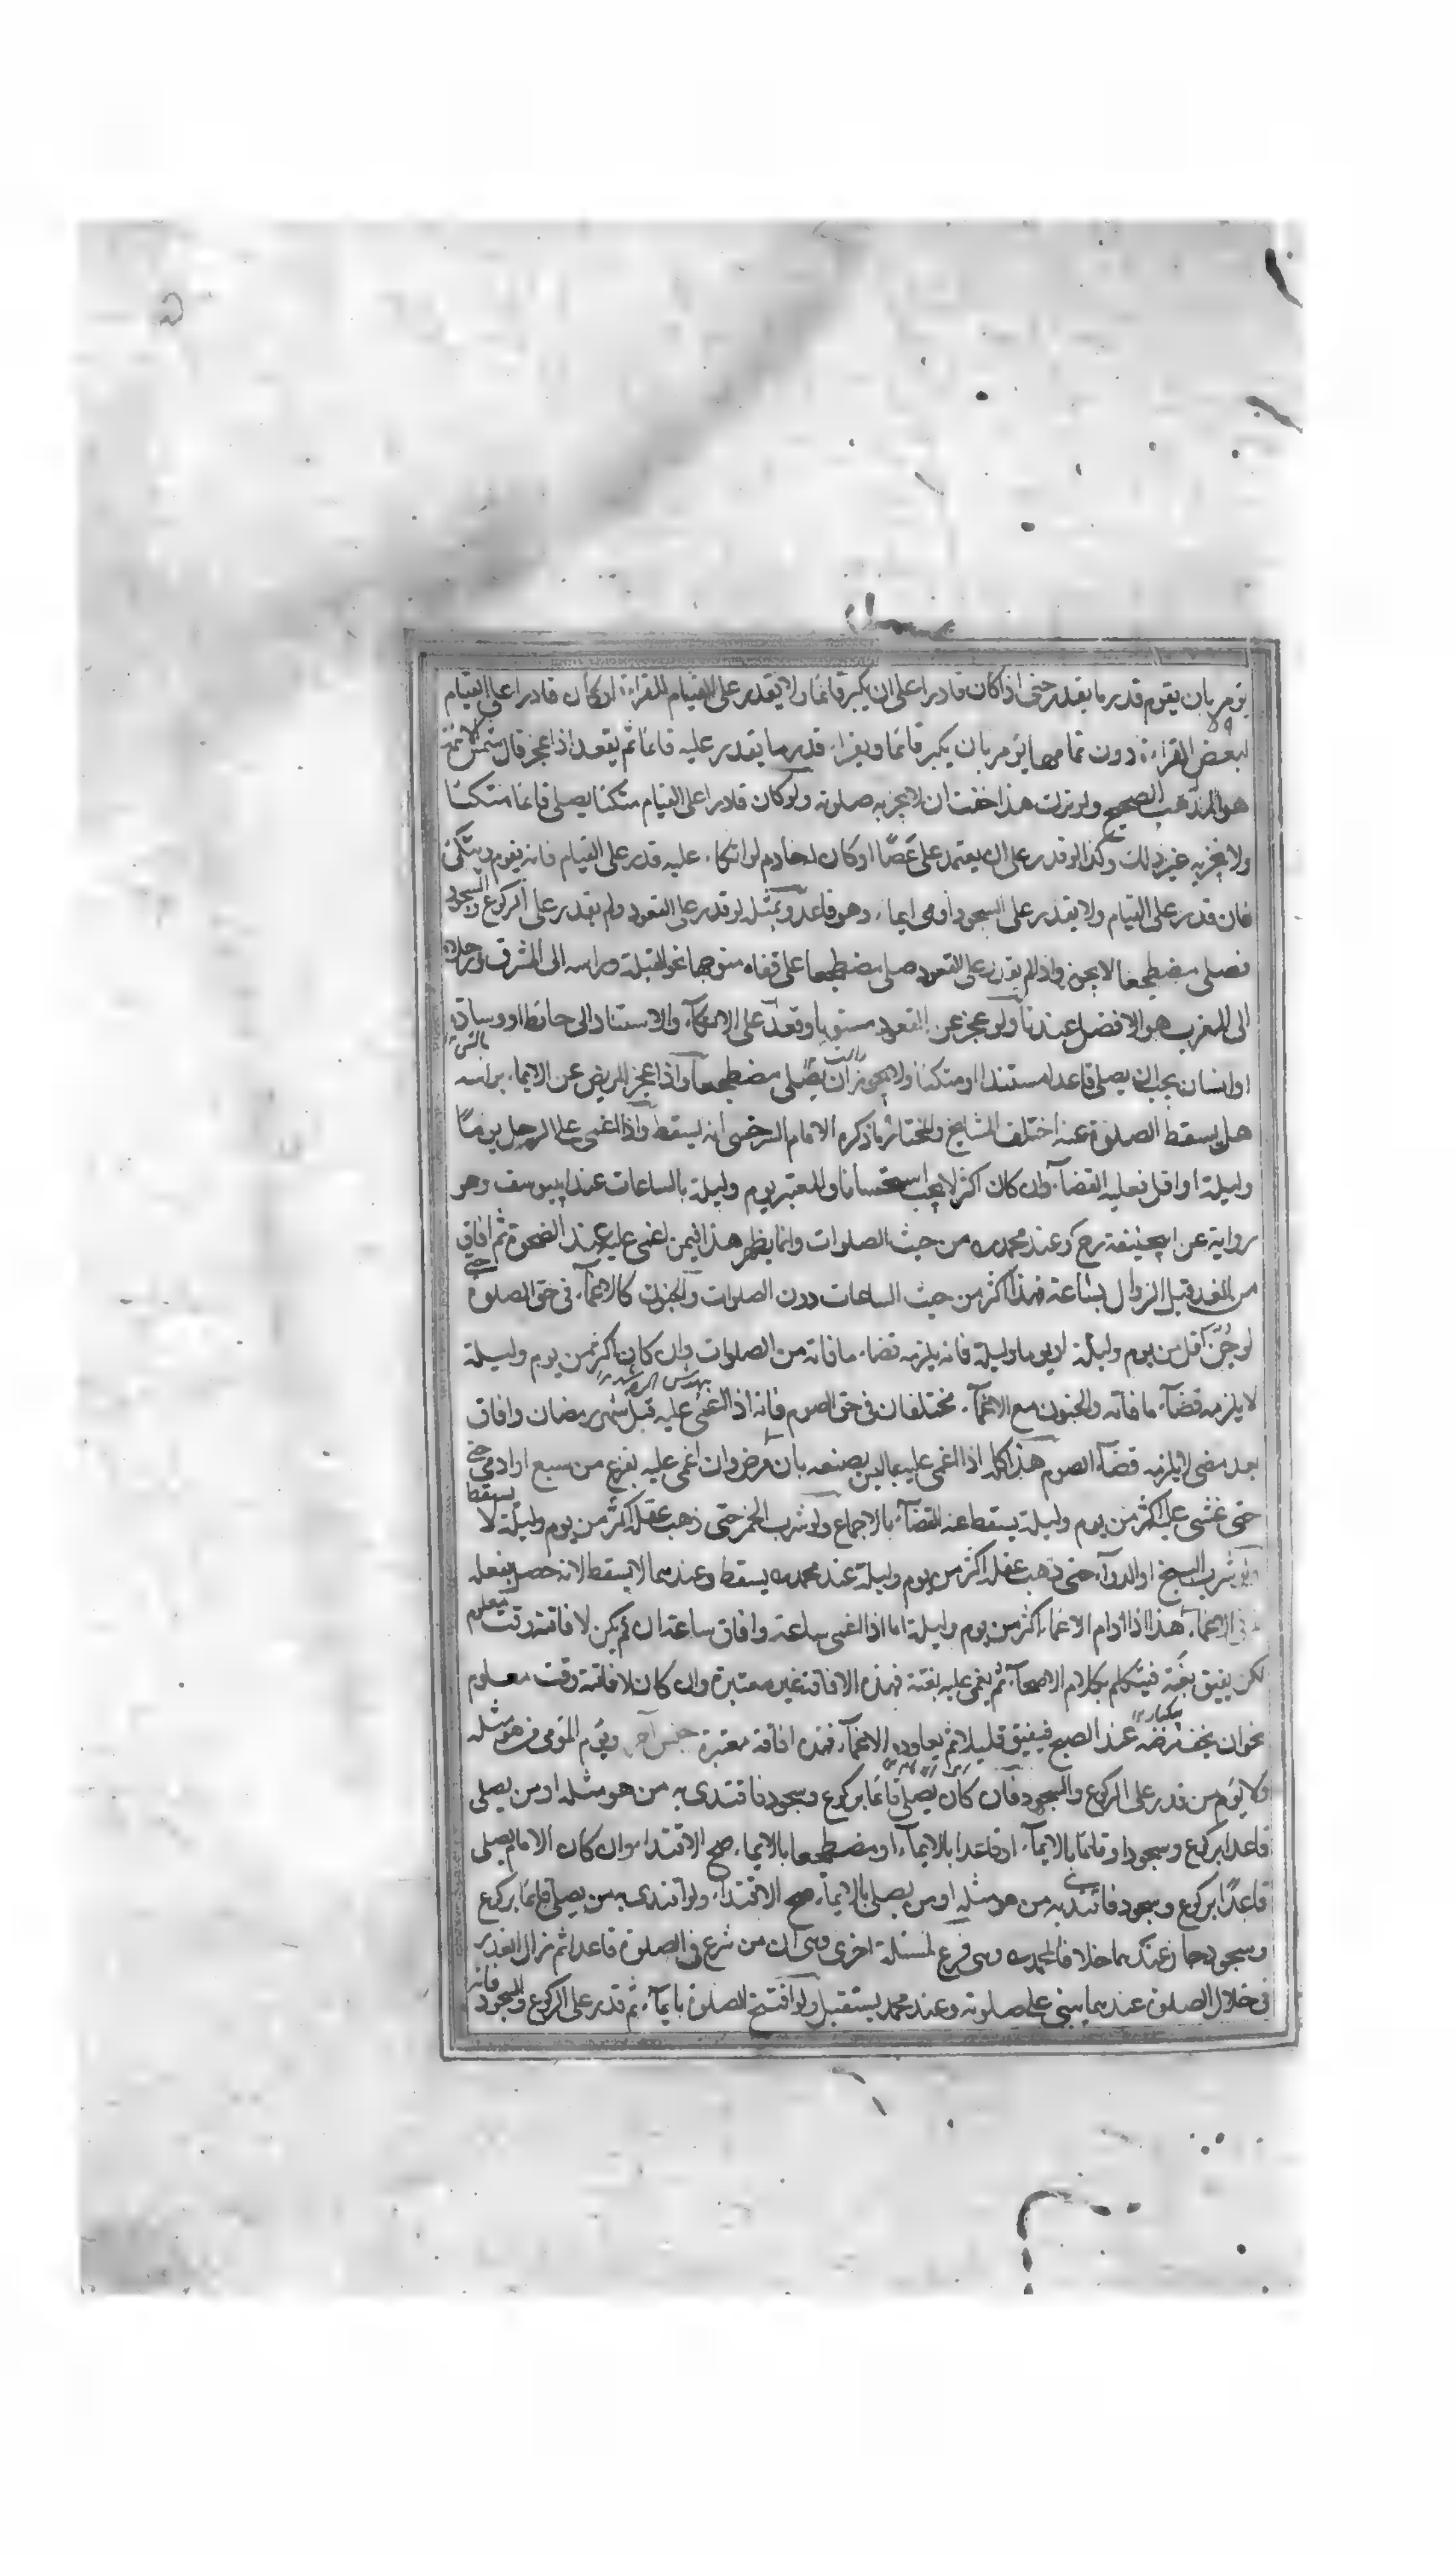 يؤمر بان يقوم قدر ما يقدر حتى اذا كان قادرا على ان يكبر قائما ولا يقدر على القيام للقراءة او كان قادرا على القيام
لبعض القراءة دون تمامها يؤمر بان يكبر قائما ويقرا قدر ما يقدر عليه قائما ثم يقعد اذا عجز قال شمس الائمة
هو المذهب الصحيح ولو ترك هذا خفت ان لا يجزيه صلوته ولو كان قادرا على القيام متكئا يصلى قائما متكئا
ولا يجزيه غير ذلك وكذا لو قدر على ان يعتمد على عصا او كان له خادم لو اتكاء عليه قدر على القيام فانه يقوم ويتكى
فان قدر على القيام ولا يقدر على السجود اومى ايماء وهو قاعد ولو قدر على القعود ولم يقدر على الركوع والسجود
فصلى مضطجعا لا يجوز واذا لم يقدر على القعود صلى مضطجعا على قفاه متوجها نحو القبلة وراسه الى المشرق ورجلاه
الى المغرب هو الافضل عندنا ولو عجز عن القعود مستويا وقعد على الاتكاء والاستناد الى حائط او وسادة
او انسان يجب ان يصلى قاعدا مستندا او متكئا ولا يجوز ان يصلى مضطجعا واذا عجز المريض عن الايماء براسه
هل يسقط الصلوة عنه اختلف المشايخ والمختار ما ذكره الامام السرخسى انه يسقط واذا اغمى على الرجل يوما
وليلة او اقل فعليه القضاء وان كان اكثر لا يجب استحسانا والمعتبر يوم وليلة بالساعات عند ابيوسف وهو
رواية عن ابيحنيفة رح وعند محمد ره من حيث الصلوات وانما يظهر هذا فيمن اغمى عليه عند الضحوة ثم افاق
من الغد قبل الزوال بساعة فهذا اكثر من حيث الساعات دون الصلوات والجنون كالاغماء فى حق الصلوة حتى
لو جن اقل من يوم وليلة او يوما وليلة فانه يلزمه قضاء ما فاته من الصلوات وان كان اكثر من يوم وليلة
لا يلزمه قضاء ما فاته والجنون مع الاغماء مختلفان فى حق الصوم فانه اذا اغمى عليه قبل شهر رمضان وافاق
بعد مضى يلزمه قضاء الصوم هذا كله اذا اغمى عليه بما ليس بصنعه بان مرض وان اغمى عليه بفزع من سبع او ادمى
حتى غشى عليه اكثر من يوم وليلة يسقط عنه القضاء بالاجماع ولو شرب الخمر حتى ذهب عقله اكثر من يوم وليلة لا يسقط
ولو شرب البنج او الدواء حتى ذهب عقله اكثر من يوم وليلة عند محمد ره يسقط وعندهما لا يسقط لانه حصل بفعله
هذا اذا دام الاغماء اكثر من يوم وليلة اما اذا اغمى ساعة وافاق ساعة ان لم يكن لافاقته وقت معلوم
لكن يفيق بغتة فيتكلم بكلام الاصحاء ثم يغمى عليه بغتة فهذه الافاقة غير معتبرة وان كان لافاقته وقت معلوم
نحو ان يخف مرضه عند الصبح فيفيق قليلا ثم يعاوده الاغماء فهذه افاقة معتبرة جنس آخر ويؤم المومى من هو مثله
ولا يؤم من قدر على الركوع والسجود فان كان يصلى قائما بركوع وسجود فاقتدى به من هو مثله او من يصلى
قاعدا بركوع وسجود او قائما بالايماء او قاعدا بالايماء او مضطجعا بالايماء صح الاقتداء وان كان الامام يصلى
قاعدا بركوع وسجود فاقتدى به من هو مثله او من يصلى بالايماء صح الاقتداء ولو اقتدى به من يصلى قائما بركوع
وسجود جاز عندهما خلافا لمحمد ره وهى فرع لمسئلة اخرى وهى ان من شرع فى الصلوة قاعدا ثم زال العذر
فى خلال الصلوة عندهما يبنى على صلوته وعند محمد يستقبل ولو افتتح الصلوة بايماء ثم قدر على الركوع والسجود فانه